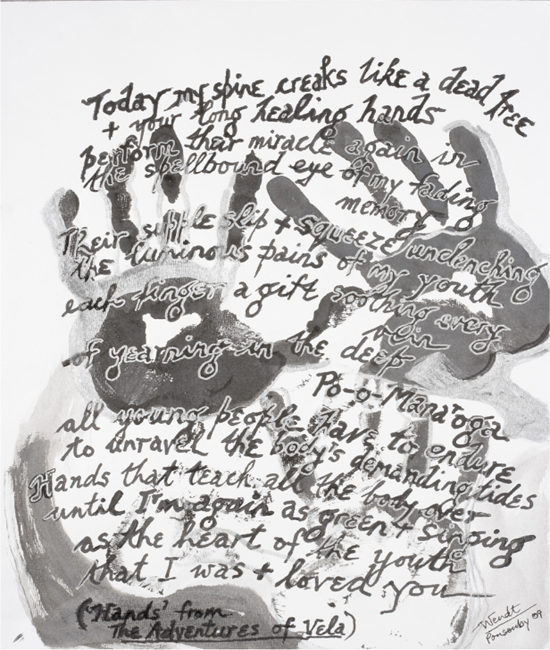 Today my spine creaks like a dead tree
+ your long healing hands
perform their miracle again in
the spellbound eye of my fading
memory
Their supple slip + squeeze unclenching
the luminous pains of my youth
each finger a gift soothing every
vein
of yearning in the deep
Po-o-Mana'oga
all young people have to endure
to unravel the body's demanding tides
Hands that teach all the body over
until I'm again as green + singing
as the heart of the youth
that I was + loved you
('Hands' from
The Adventures of Vela)
Wendt
Ponsonby 09